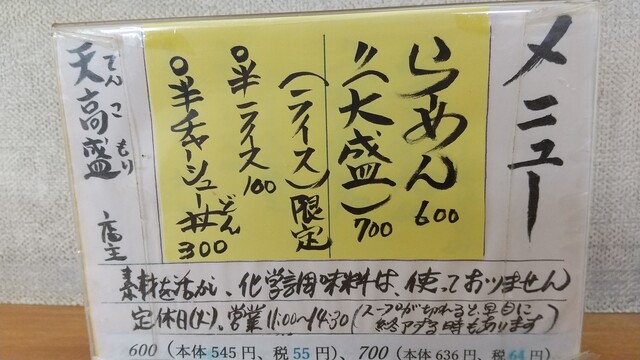 メニュー
らめん 600
〃(大盛) 700
(ライス)限定
○半ライス 100
○半チャーシュー丼 どん 300
天高盛 店主
てんこもり
素材を活かし、化学調味料は、使っておりません
定休日(火)、営業11:00〜14:30(スープが切れると早目に終了する時もあります)
600 (本体 545 円、税 55 円)、700 (本体 636 円、税 64 円)